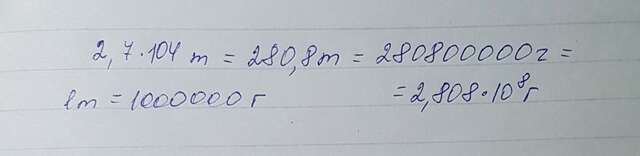 2,7·104 т = 280,8т = 280800000г =
1т = 1000000 г = 2,808·10⁸г